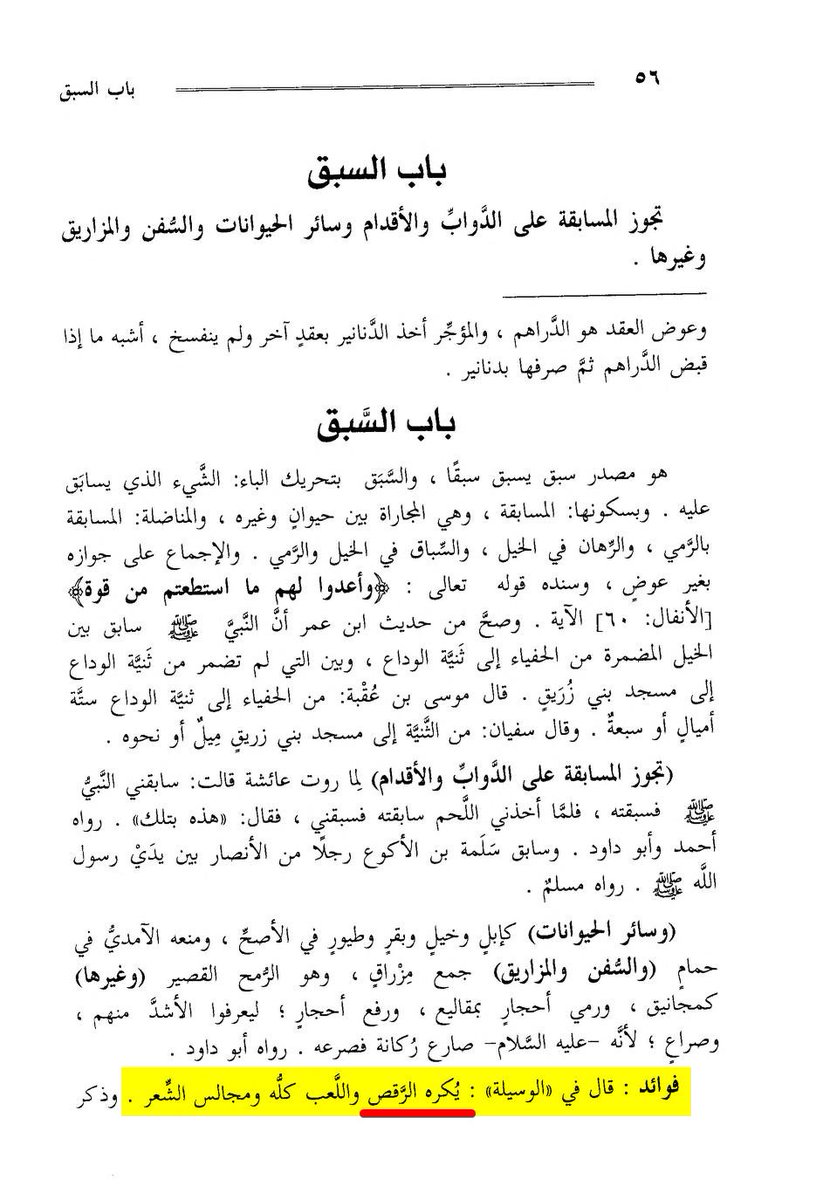 ٥٦
باب السبق
باب السبق
تجوز المسابقة على الدَّوابِّ والأقدام وسائر الحيوانات والسُّفن والمزاريق
وغيرها .
وعوض العقد هو الدَّراهم ، والمؤجِّر أخذ الدَّنانير بعقدٍ آخر ولم ينفسخ ، أشبه ما إذا
قبض الدَّراهم ثمَّ صرفها بدنانير .
باب السَّبق
هو مصدر سبق يسبق سبقًا ، والسَّبَق بتحريك الباء: الشَّيء الذي يسابَق
عليه . وبسكونها: المسابقة ، وهي المجاراة بين حيوانٍ وغيره ، والمناضلة: المسابقة
بالرَّمي ، والرِّهان في الخيل ، والسِّباق في الخيل والرَّمي . والإجماع على جوازه
بغير عوضٍ ، وسنده قوله تعالى : ﴿وأعدوا لهم ما استطعتم من قوة﴾
[الأنفال: ٦٠] الآية . وصحَّ من حديث ابن عمر أنَّ النَّبيَّ ﷺ سابق بين
الخيل المضمرة من الحفياء إلى ثَنيَّة الوداع ، وبين التي لم تضمر من ثَنيَّة الوداع
إلى مسجد بني زُرَيقٍ . قال موسى بن عُقْبة: من الحفياء إلى ثنيَّة الوداع ستَّة
أميالٍ أو سبعةٌ . وقال سفيان: من الثَّنيَّة إلى مسجد بني زريقٍ مِيلٌ أو نحوه .
(تجوز المسابقة على الدَّوابِّ والأقدام) لِما روت عائشة قالت: سابقني النَّبيُّ
ﷺ فسبقته ، فلمَّا أخذني اللَّحم سابقته فسبقني ، فقال: «هذه بتلك» . رواه
أحمد وأبو داود . وسابق سَلَمة بن الأكوع رجلًا من الأنصار بين يدَيْ رسول
اللَّه ﷺ . رواه مسلمٌ .
(وسائر الحيوانات) كإبلٍ وخيلٍ وبقرٍ وطيورٍ في الأصحِّ ، ومنعه الآمديُّ في
حمامٍ (والسُّفن والمزاريق) جمع مِزْراقٍ ، وهو الرُّمح القصير (وغيرها)
كمجانيق ، ورمي أحجارٍ بمقاليع ، ورفع أحجارٍ ؛ ليعرفوا الأشدَّ منهم ،
وصراعٍ ؛ لأنَّه -عليه السَّلام- صارع رُكانة فصرعه . رواه أبو داود .
فوائد : قال في «الوسيلة» : يُكره الرَّقص واللَّعب كلُّه ومجالس الشِّعر . وذكر